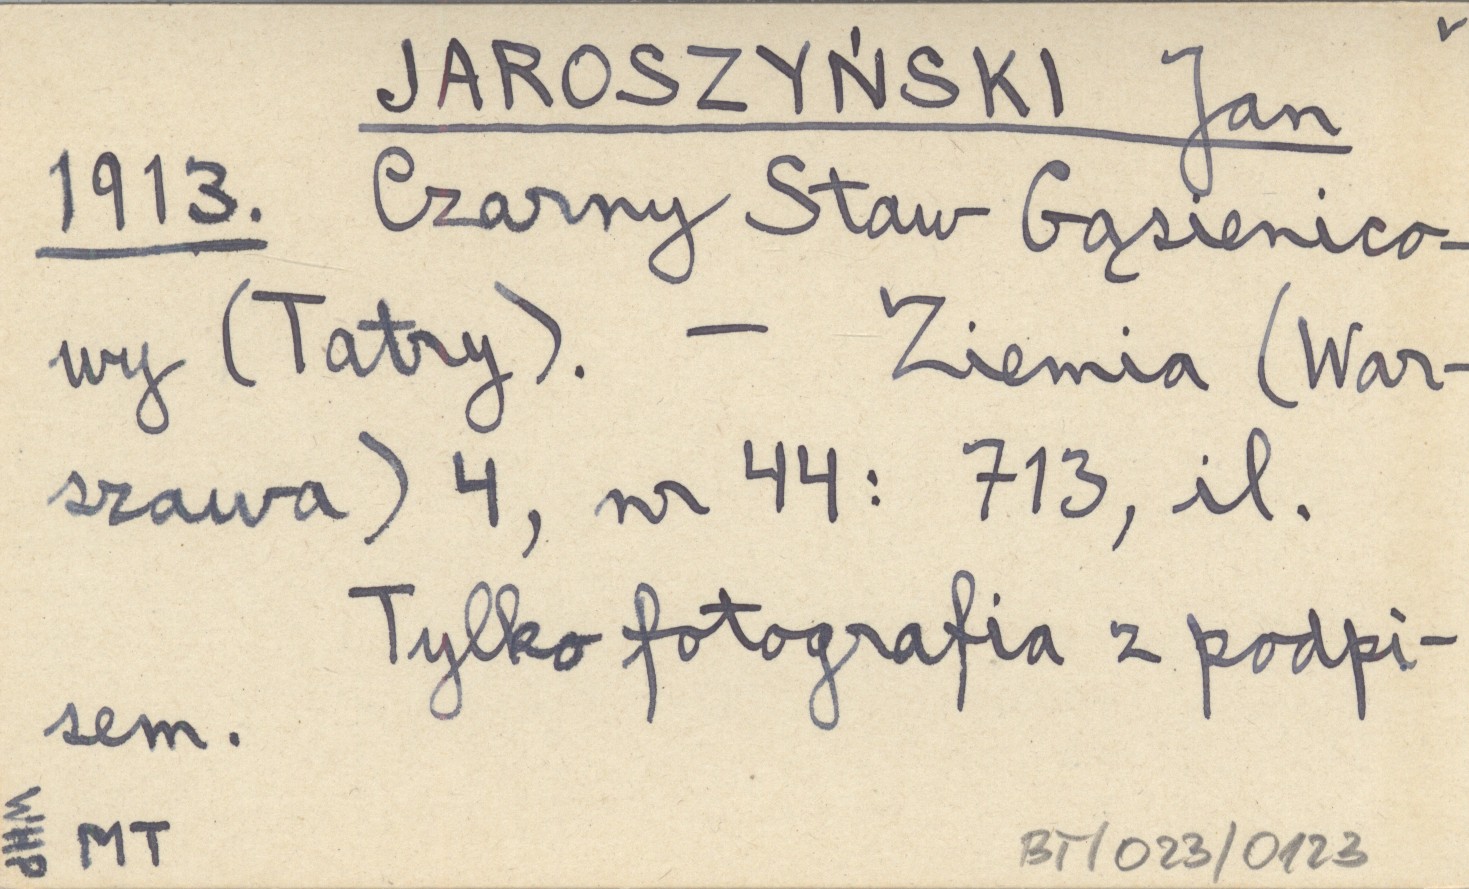 JAROSZYŃSKI Jan
1913. Czarny Staw Gąsienico-
wy (Tatry). — Ziemia (War-
szawa) 4, nr 44: 713, il.
Tylko fotografia z podpi-
sem.
WHP
MT
BT/023/0123